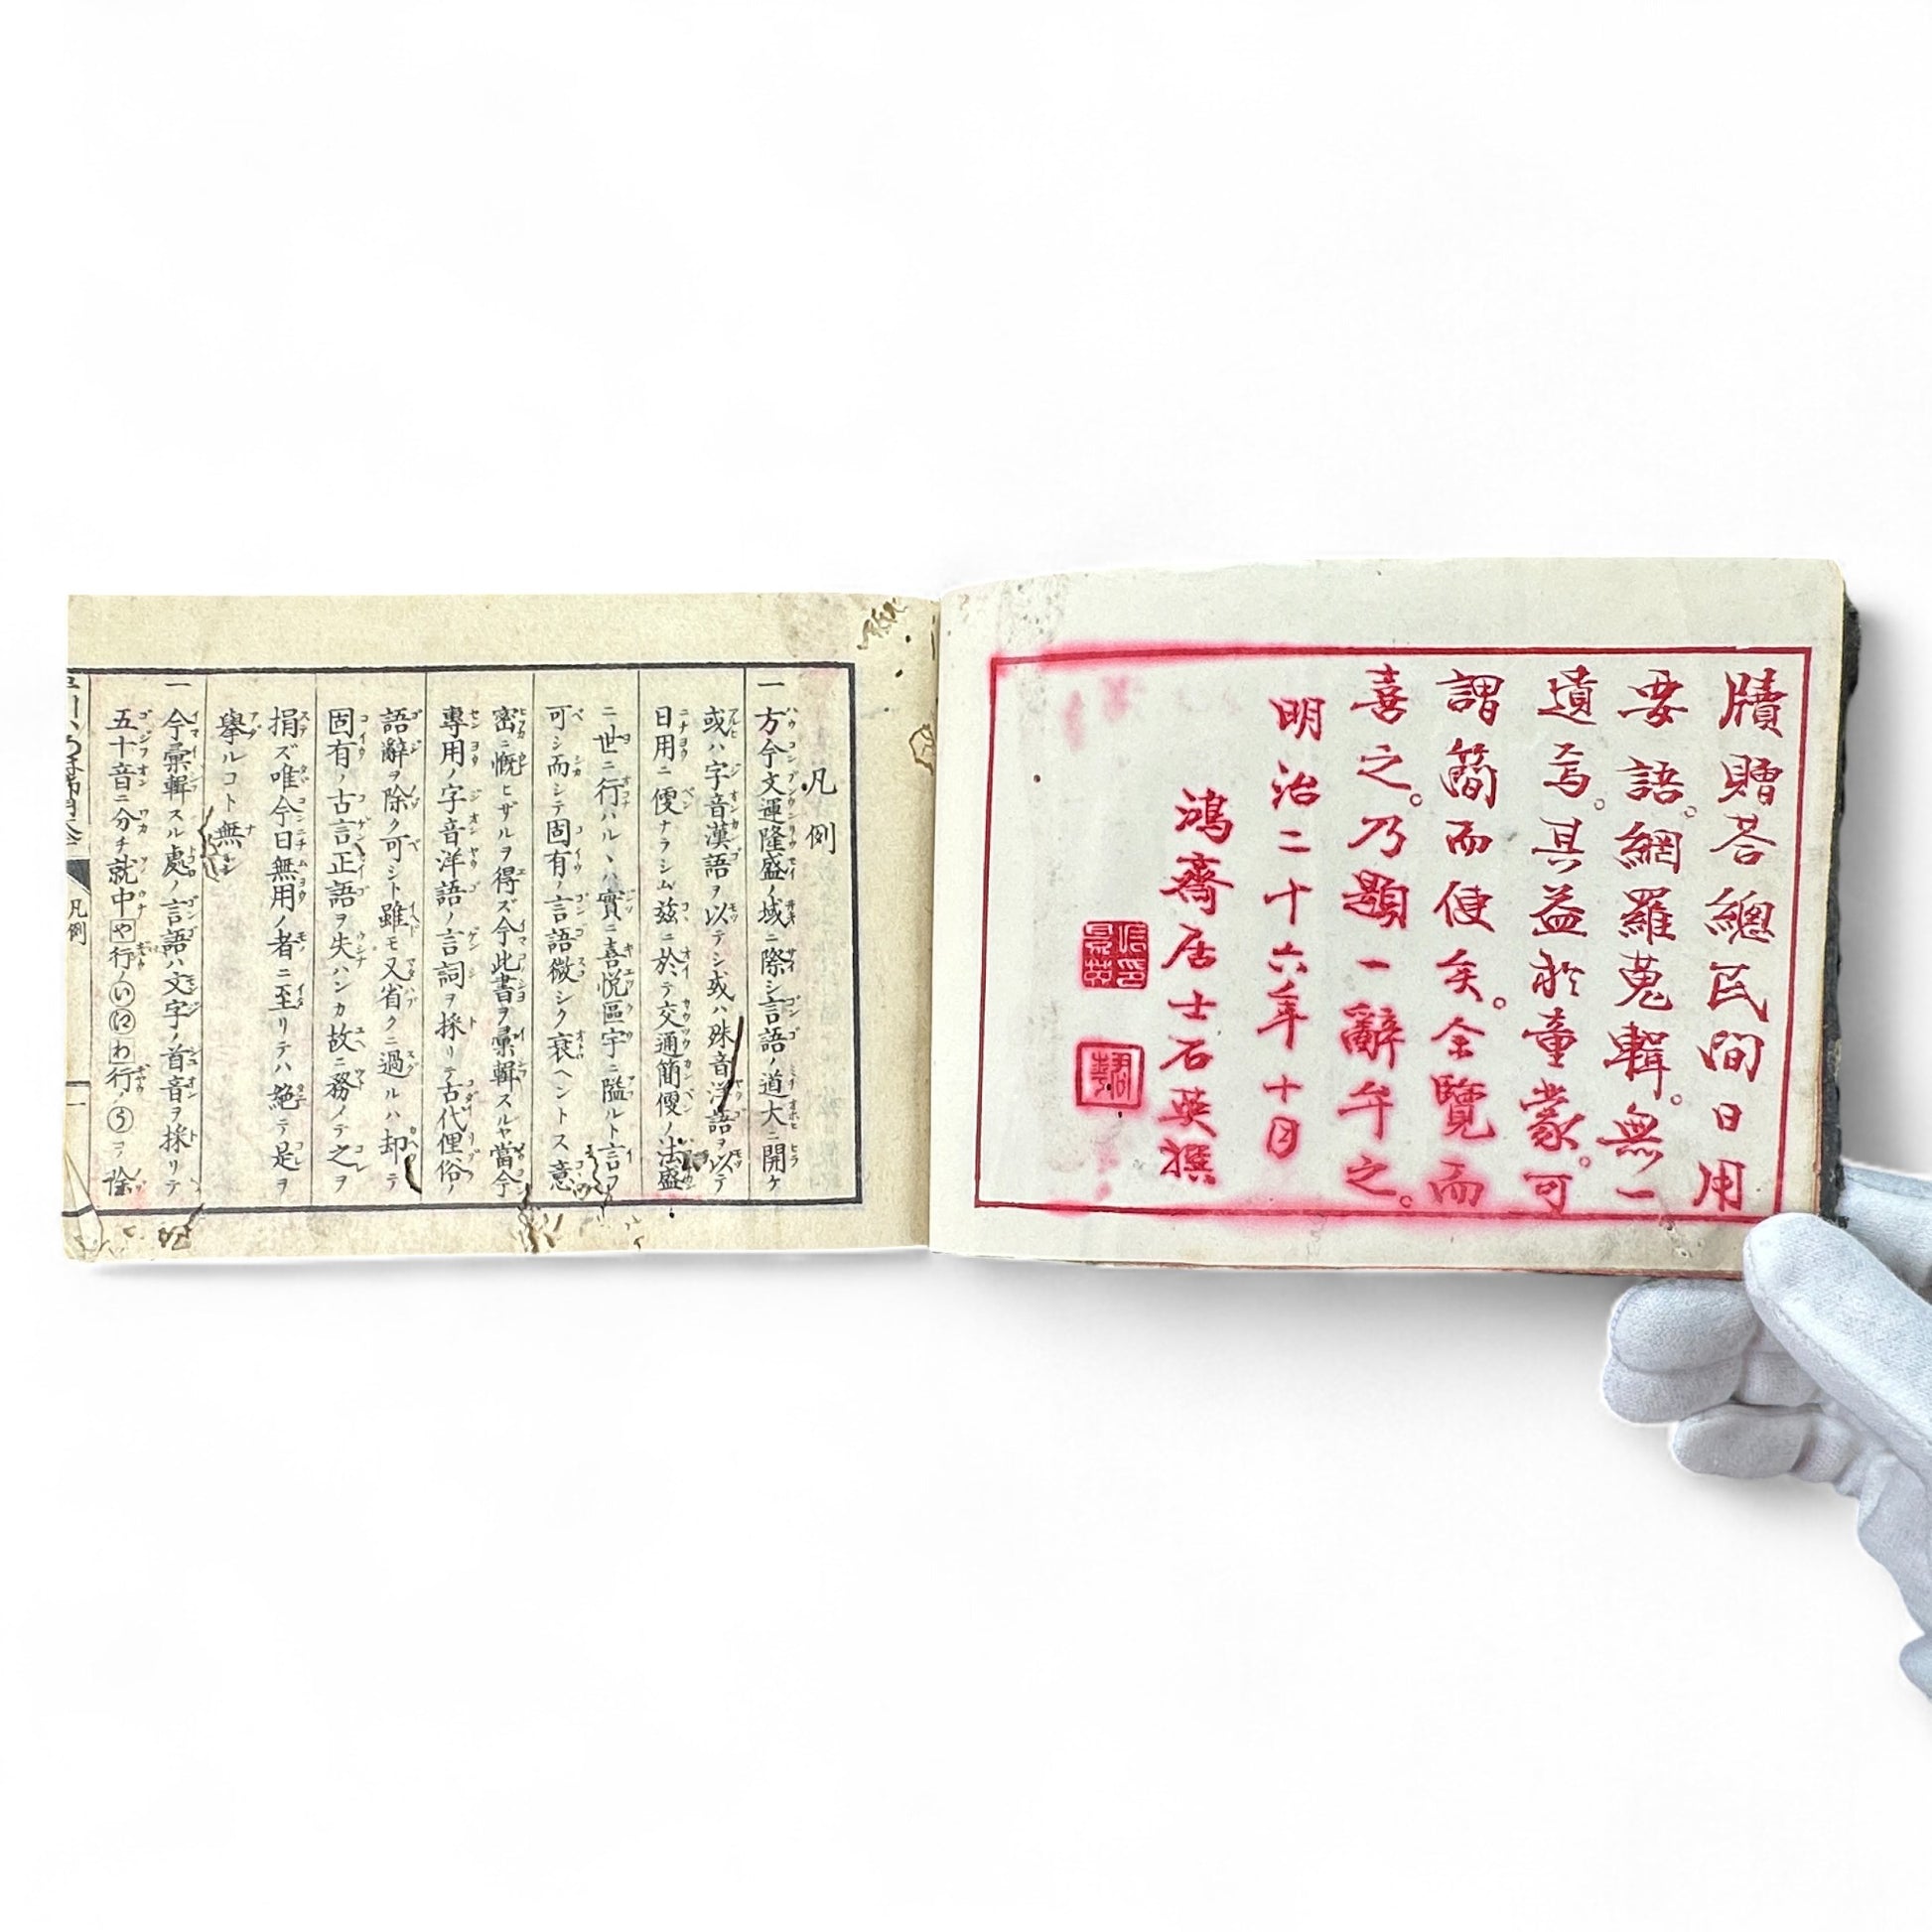 牘贈荅總民間日用
要語。網羅蒐輯。無一
遺焉。其益於童蒙。可
謂簡而便矣。余覽而
喜之。乃題一辭弁之。
明治二十六年十月
鴻齋居士石英撰
凡例
一方今文運隆盛ノ域ニ際シ言語ノ道大ニ開ケ
或ハ字音漢語ヲ以テシ或ハ殊音洋語ヲ以テ
日用ニ便ナラシム茲ニ於テ交通簡便ノ法盛
ニ世ニ行ハルヽハ實ニ喜悦區宇ニ隘ルト言フ
可シ而シテ固有ノ言語微シク衰ヘントス意
密ニ慨ヒザルヲ得ズ今此書ヲ彙輯スルヤ當今
專用ノ字音洋語ノ言詞ヲ採リテ古代俚俗ノ
語辭ヲ除ク可シト雖モ又省クニ過ルハ却テ
固有ノ古言正語ヲ失ハンカ故ニ務メテ之ヲ
捐ズ唯今日無用ノ者ニ至リテハ絶テ是ヲ
擧ルコト無シ
一今彙輯スル處ノ言語ハ文字ノ首音ヲ採リテ
五十音ニ分チ就中や行ノいえわ行ノうヲ除
凡例
一